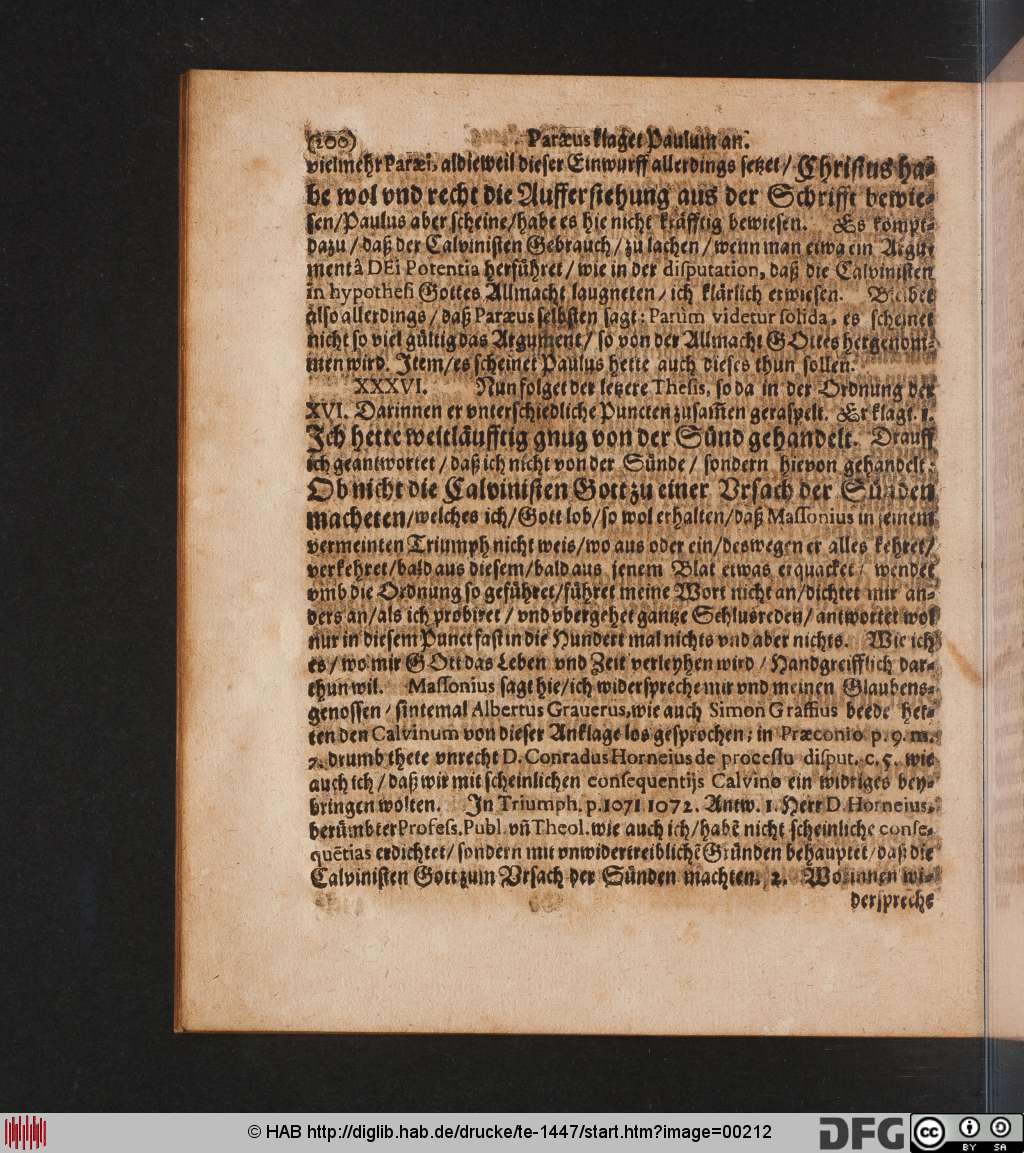 (200) Paræus klaget Paulum an.
vielmehr Paræi, aldieweil dieser Einwurff allerdings setzet / Christus ha-
be wol vnd recht die Aufferstehung aus der Schrifft bewie-
sen/Paulus aber scheine/habe es hie nicht kräfftig bewiesen. Es kompt
dazu / daß der Calvinisten Gebrauch / zu lachen / wenn man etwa ein Argu-
ment â DEi Potentia herführet / wie in der disputation, daß die Calvinisten
in hypothesi Gottes Allmacht laugneten / ich klärlich erwiesen. Bleibet
also allerdings / daß Paræus selbsten sagt: Parùm videtur solida, es scheinet
nicht so viel gültig das Argument / so von der Allmacht GOttes hergenom-
men wird. Item/es scheinet Paulus hette auch dieses thun sollen.
XXXVI. Nun folget der letzere Thesis, so da in der Ordnung der
XVI. Darinnen er vnterschiedliche Puncten zusam̃en geraspelt. Er klagt. 1.
Ich hette weitläufftig gnug von der Sünd gehandelt. Drauff
ich geantwortet / daß ich nicht von der Sünde / sondern hievon gehandelt:
Ob nicht die Calvinisten Gott zu einer Vrsach der Sünden
macheten/welches ich/Gott lob/so wol erhalten/daß Massonius in seinem
vermeinten Triumph nicht weis/wo aus oder ein/deswegen er alles kehret/
verkehret/bald aus diesem/bald aus jenem Blat etwas erquacket / wendet
vmb die Ordnung so geführet/führet meine Wort nicht an/dichtet mir an-
ders an/als ich probiret / vnd vbergehet gantze Schlusreden/ antwortet wol
nur in diesem Punct fast in die Hundert mal nichts vnd aber nichts. Wie ich
es / wo mir GOtt das Leben vnd Zeit verleyhen wird / Handgreifflich dar-
thun wil. Massonius sagt hie/ich widerspreche mir vnd meinen Glaubens-
genossen / sintemal Albertus Grauerus, wie auch Simon Graffius beede het-
ten den Calvinum von dieser Anklage los gesprochen; in Præconio p. 9. m.
7. drumb thete vnrecht D. Conradus Horneius de processu disput. c. 5. wie
auch ich / daß wir mit scheinlichen consequentijs Calvino ein widriges bey-
bringen wolten. In Triumph. p. 1071 1072. Antw. 1. Herr D. Horneius,
berümbter Profess. Publ. vñ Theol. wie auch ich/habẽ nicht scheinliche conse-
quẽtias erdichtet/ sondern mit vnwidertreiblichẽ Gründen behauptet/daß die
Calvinisten Gott zum Vrsach der Sünden machten. 2. Worinnen wi-
derspreche
© HAB http://diglib.hab.de/drucke/te-1447/start.htm?image=00212
DFG
cc
BY SA